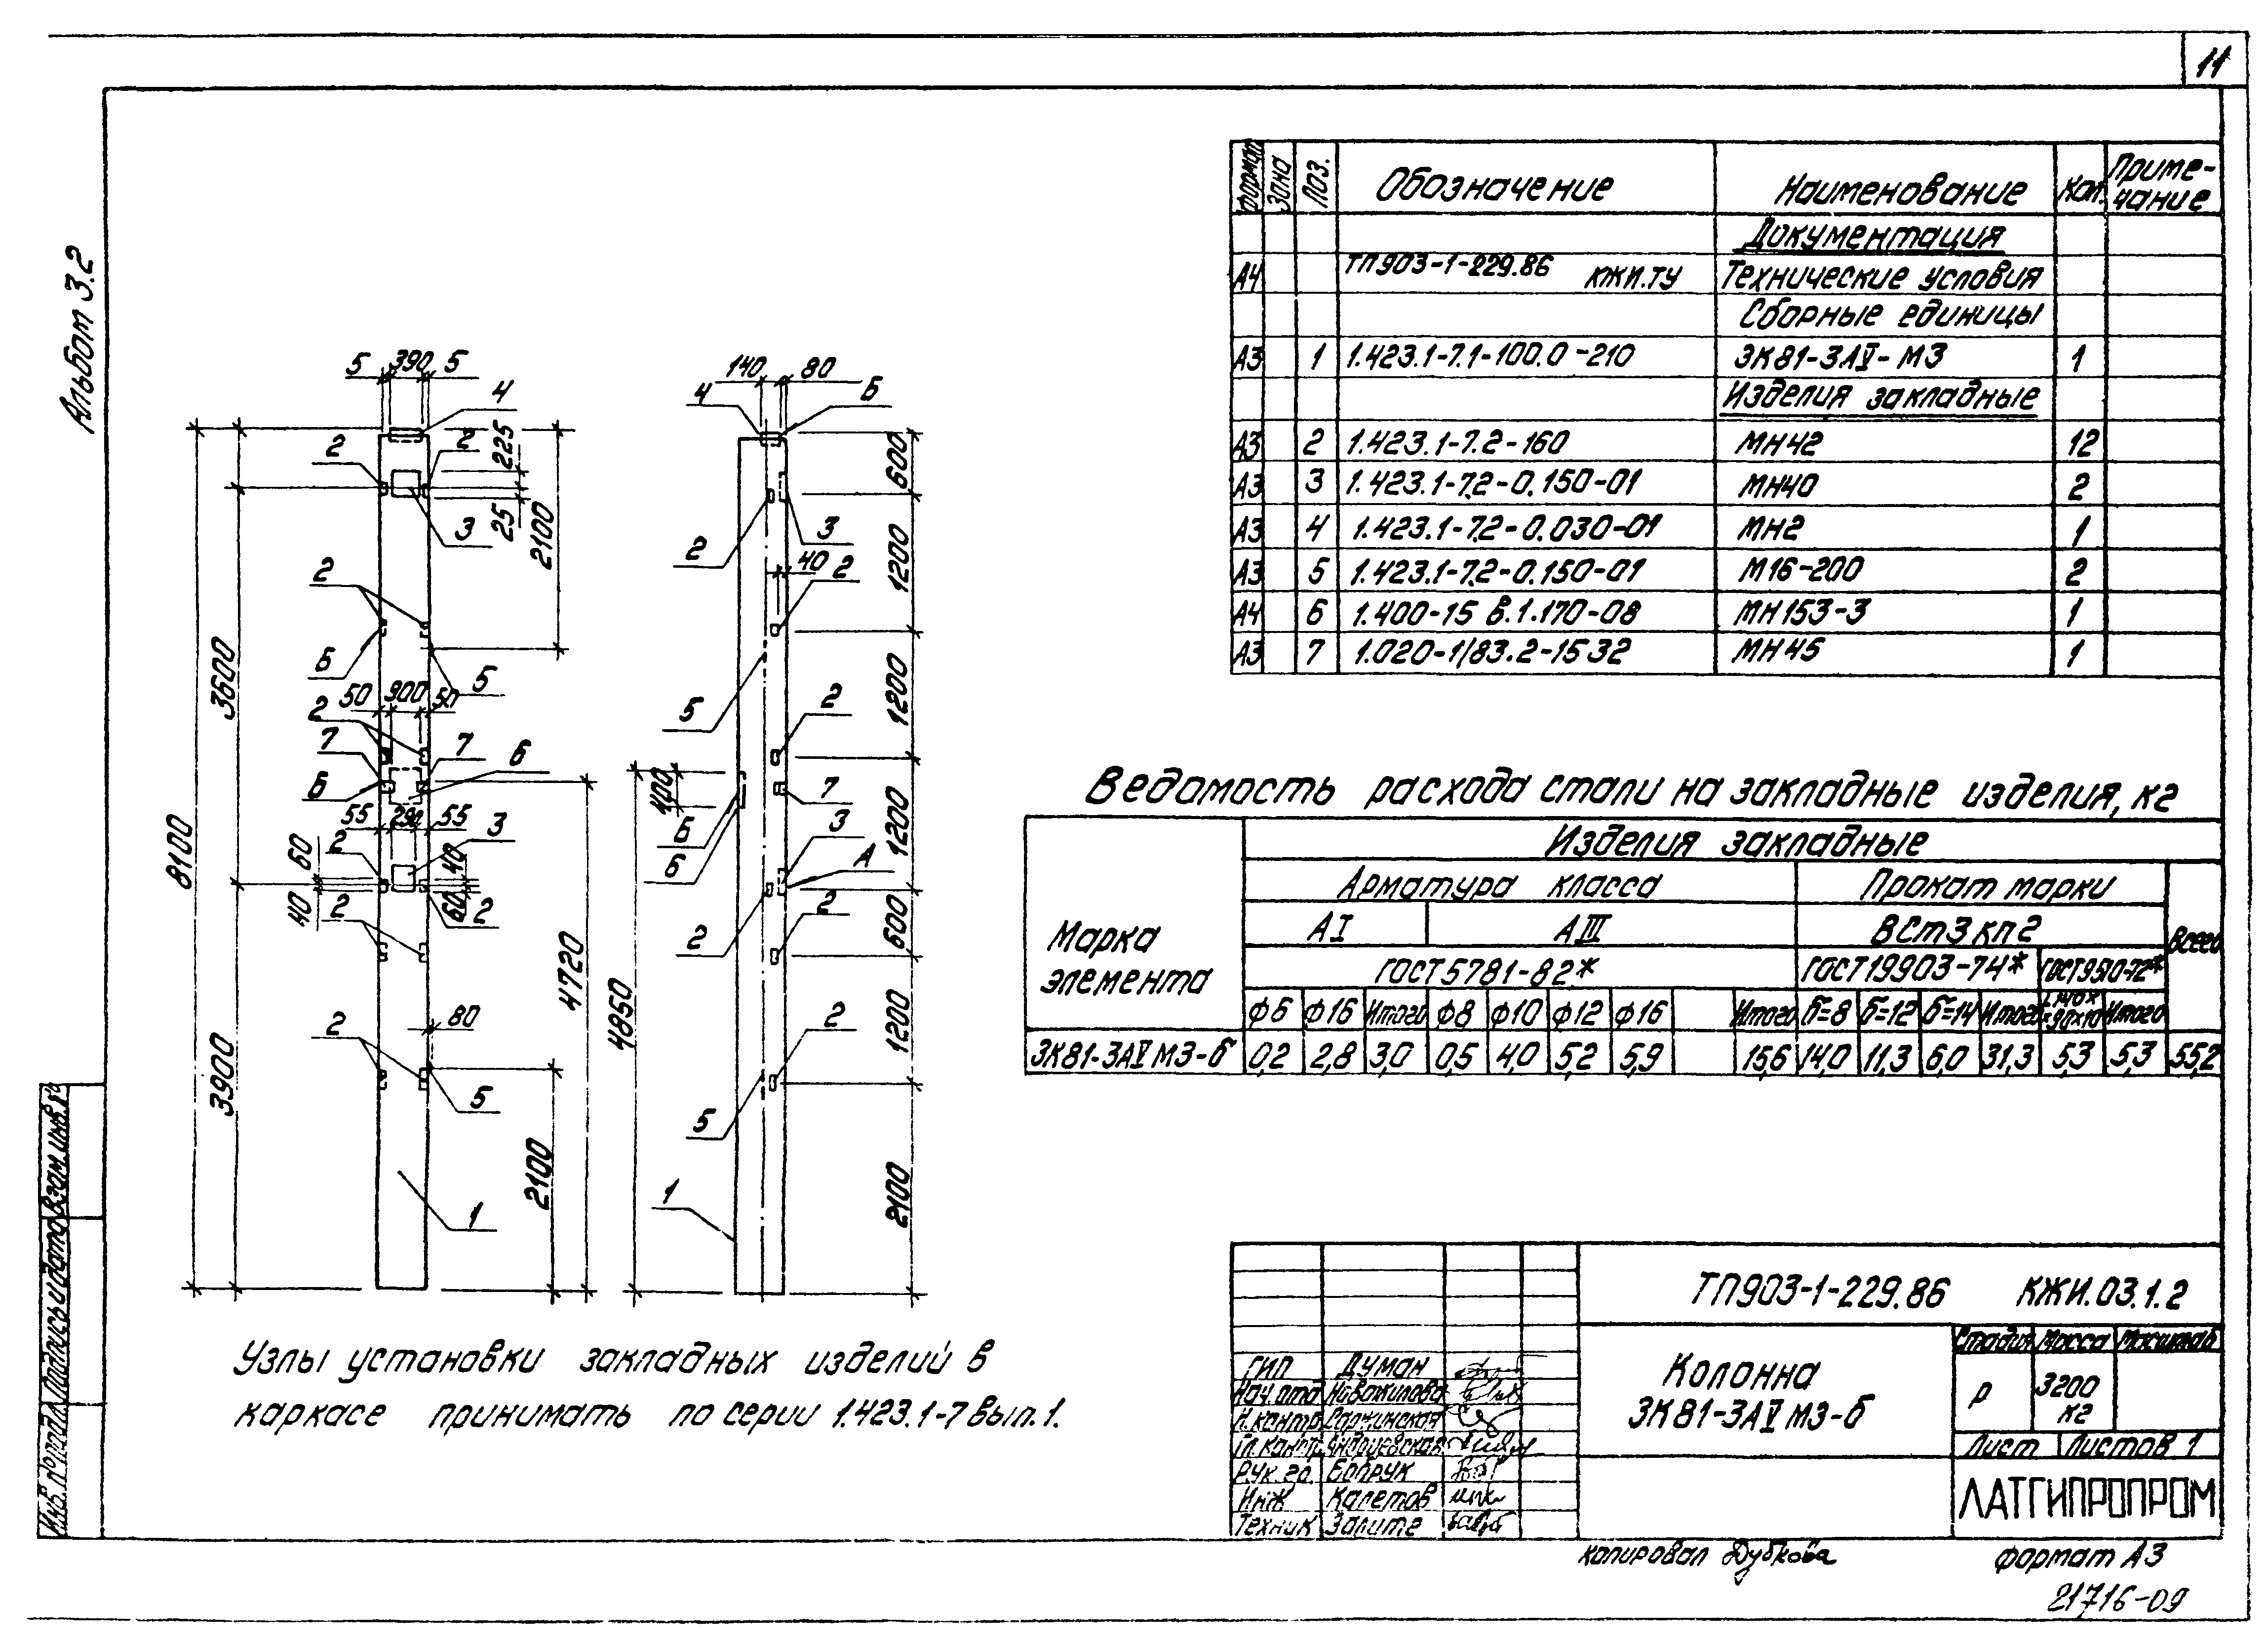 11
Альбом 3.2
Формат Зона Поз. Обозначение Наименование Кол. Приме-
чание
Документация
А4 ТП903-1-229.86 КЖИ.ТУ Технические условия
Сборные единицы
А3 1 1.423.1-7.1-100.0-210 3К81-3АⅤ-М3 1
Изделия закладные
А3 2 1.423.1-7.2-160 МН42 12
А3 3 1.423.1-7.2-0.150-01 МН40 2
А3 4 1.423.1-7.2-0.030-01 МН2 1
А3 5 1.423.1-7.2-0.150-01 М16-200 2
А4 6 1.400-15 В.1.170-08 МН153-3 1
А3 7 1.020-1/83.2-1532 МН45 1
5 390 5
4
2 2 225
3 25
2100
2
Б 5
50 300 50
2
7 7 6
Б
55 290 55
3
60 2 40
40 2 60 2
80
2
5
1
8100
3600
3900
4720
2100
140 80
4 Б
600
2 3
40 2
1200
5 2
1200
100 7
Б 3
6 А
1200
2 2
600
2
1200
5
1
2100
4850
Узлы установки закладных изделий в
каркасе принимать по серии 1.423.1-7 вып.1.
Ведомость расхода стали на закладные изделия, кг
Марка
элемента
Изделия закладные
Арматура класса Прокат марки Всего
АⅠ АⅢ ВСт3кп2
ГОСТ5781-82* ГОСТ19903-74* ГОСТ9510-72*
ф6 ф16 Итого ф8 ф10 ф12 ф16 Итого б=8 б=12 б=14 Итого L140×
×90×10 Итого
3К81-3АⅤМ3-б 0,2 2,8 3,0 0,5 4,0 5,2 5,9 15,6 14,0 11,3 6,0 31,3 5,3 5,3 55,2
ТП903-1-229.86 КЖИ.03.1.2
Колонна
3К81-3АⅤМ3-б
Стадия Масса Масштаб
Р 3200
кг
Лист Листов 1
ЛАТГИПРОПРОМ
ГИП Думан
Нач.отд Новожилова
Н.контр
Гл.констр. Андриевская
Рук.гр. Бобрук
Инж Калетов
Техник Залите
Взам.инв.№
Подпись и дата
Инв.№ подл.
копировал Дубкова
формат А3
21716-09